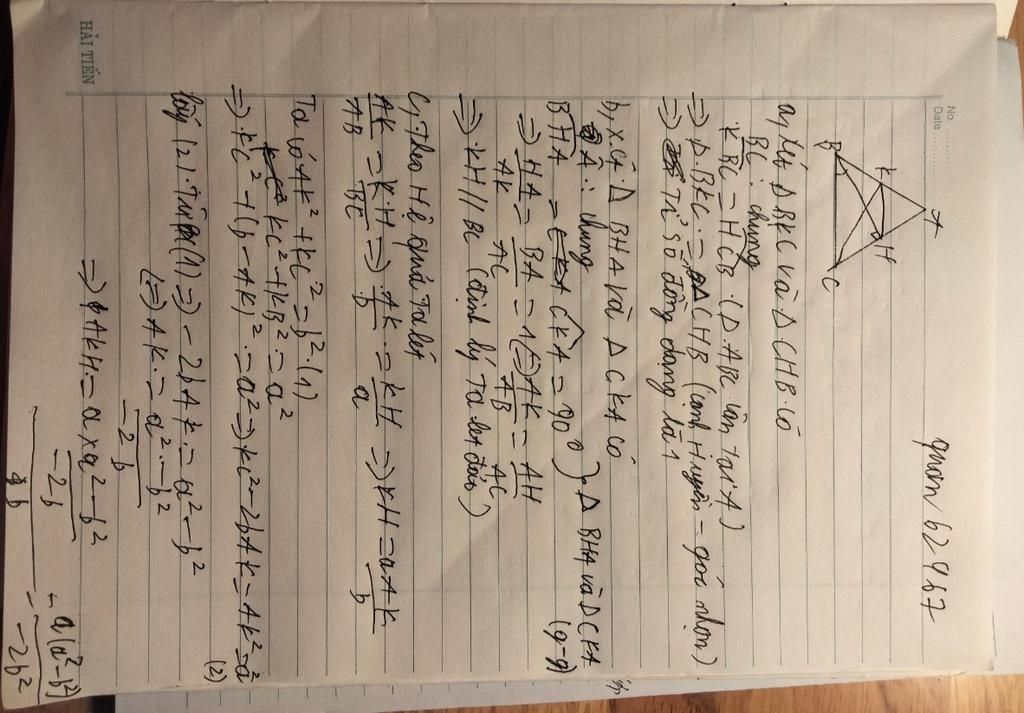 No.
Date
quom b2467
A
K
H
B
C
a, Xét Δ BKC và Δ CHB có
BC : chung
KBC = HCB (Δ ABC cân tại A)
=> Δ BKC = Δ CHB (cạnh Huyền = góc nhọn)
=> Tỉ số đồng dạng là 1
b, Xét Δ BHA và Δ CKA có
A : chung
BHA = CKA = 90° } Δ BHA và Δ CKA (g-g)
=> HA/AK = BA/AC = 1 <=> AK/AB = AH/AC
=> KH // BC (định lý Ta let đảo)
C, Theo Hệ quả Ta lét
AK/AB = KH/BC => AK/b = KH/a => KH = aAK/b
Ta có AK² + KC² = b² (1)
KC² + KB² = a²
=> KC² + (b - AK)² = a² => KC² - 2bAK = AK² = a² (2)
lấy (2) Trừ (1) => - 2bAK = a² - b²
<=> AK = a² - b² / -2b
=> AKH = a x a² - b² / -2b / b = a(a² - b²) / -2b²
HẢI TIẾN